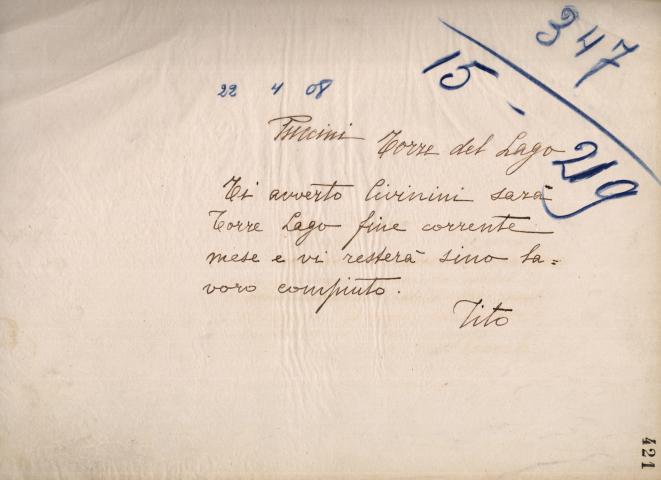 347
15 - 219
22 4 08
Puccini Torre del Lago
Ti avverto Civinini sarà
Torre Lago fine corrente
mese e vi resterà sino la=
voro compiuto.
Tito
421